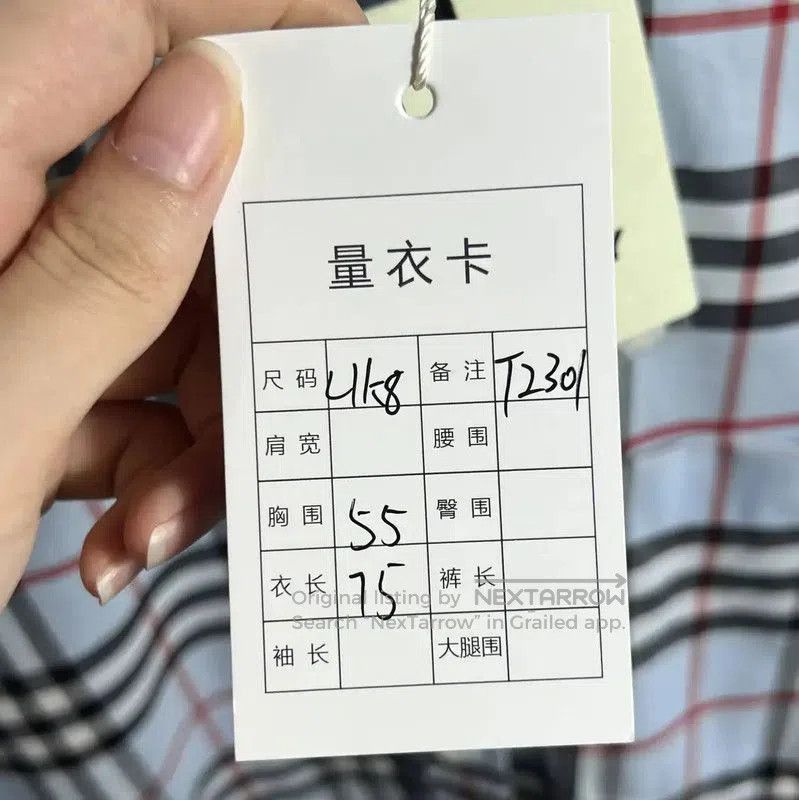 量衣卡
尺码 备注 T2301
肩宽 腰围
胸围 55 臀围
衣长 75 裤长
Original listing by NEXTARROW
Search "NexTarrow" in Grailed app.
袖长 大腿围